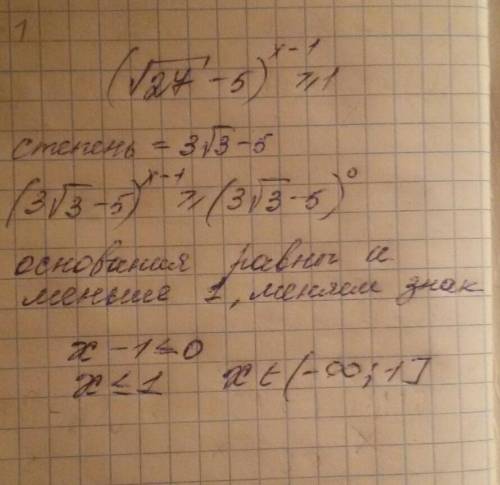 1
(√27 - 5)^(x-1) ⩾ 1
степень = 3√3 - 5
(3√3 - 5)^(x-1) ⩾ (3√3 - 5)^0
основания равны и
меньше 1, меняем знак
x - 1 ≤ 0
x ≤ 1 x ∈ (-∞; 1]